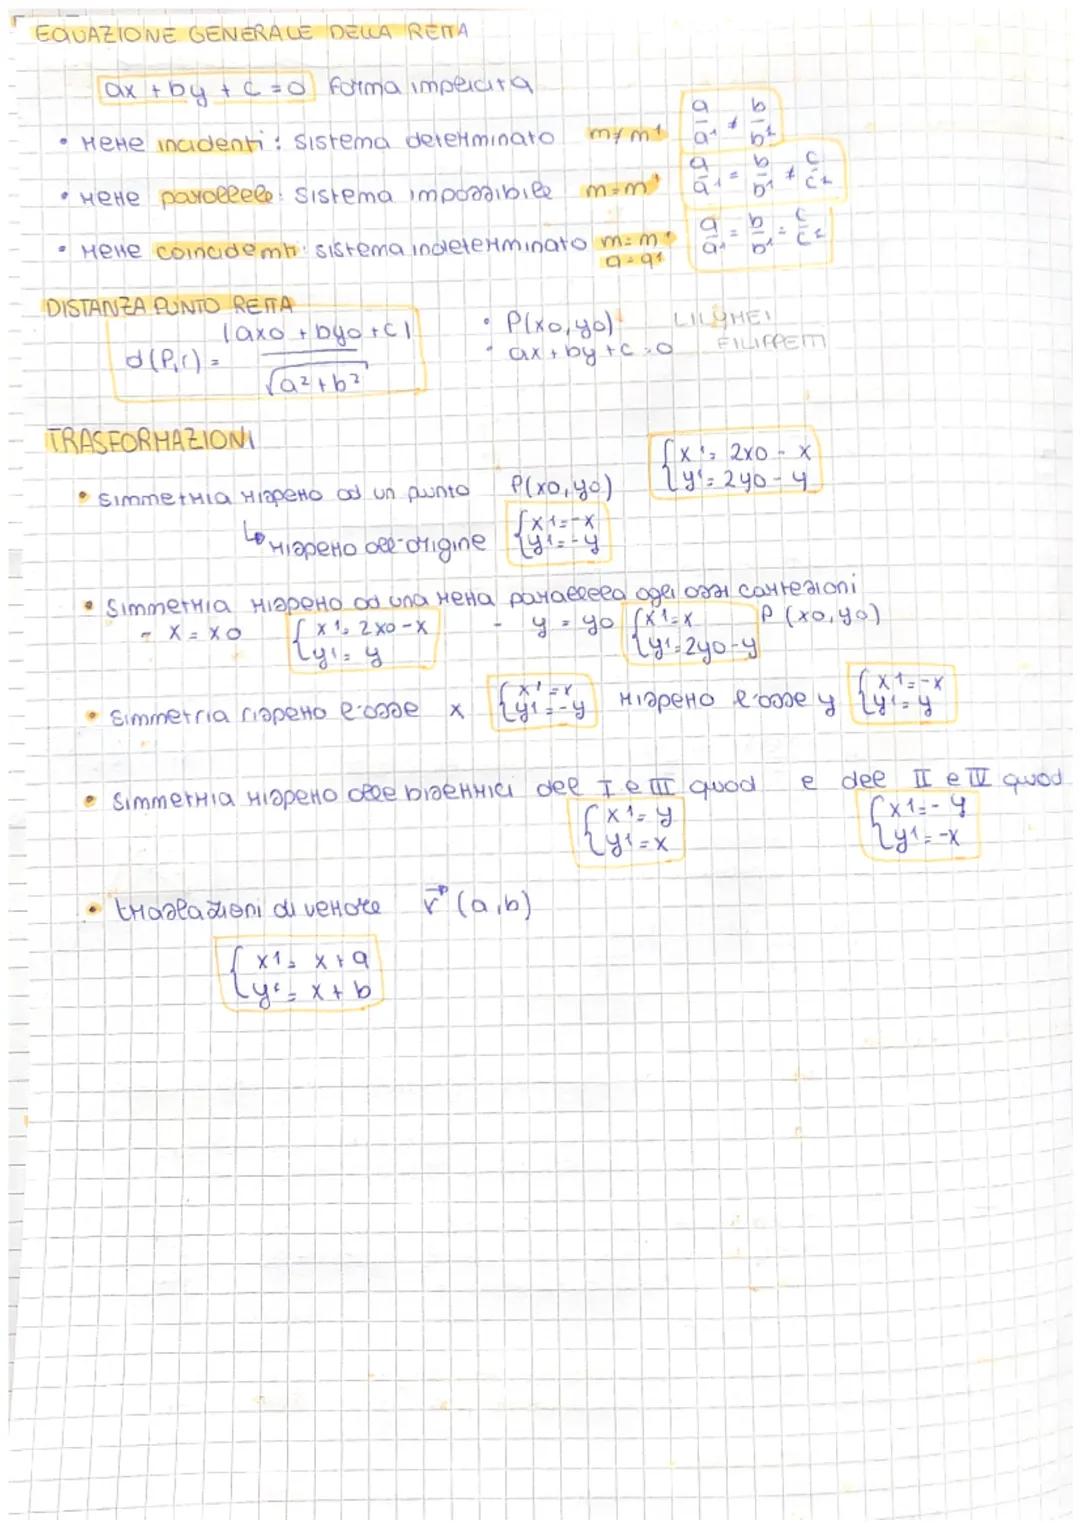 EQUAZIONE GENERALE DELLA RETTA
ax + by + c = 0 forma implicita
• rette incidenti: sistema determinato m≠m' a/a' ≠ b/b'
• rette parallele: sistema impossibile m=m' a/a' = b/b' ≠ c/c'
• rette coincidenti: sistema indeterminato m=m' q=q' a/a' = b/b' = c/c'
DISTANZA PUNTO RETTA
d(P,r) = |ax0 + by0 + c| / √a²+b²
• P(x0,y0)
• ax + by + c = 0
FILIPPETTI
TRASFORMAZIONI
• simmetria rispetto ad un punto P(x0,y0) { x' = 2x0 - x y' = 2y0 - y
↳ rispetto all'origine { x' = -x y' = -y
• simmetria rispetto ad una retta parallela agli assi cartesiani
- x = x0 { x' = 2x0 - x y' = y - y = y0 { x' = x y' = 2y0 - y P (x0,y0)
• simmetria rispetto l'asse x { x' = x y' = -y rispetto l'asse y { x' = -x y' = y
• simmetria rispetto alle bisettrici del I e III quad e del II e IV quad
{ x' = y y' = x { x' = -y y' = -x
• traslazioni di vettore v→ (a,b)
{ x' = x + a y' = x + b